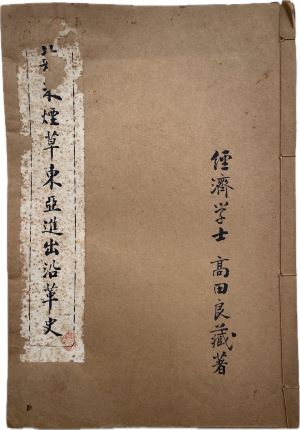 經濟学士 高田良藏著
米煙草東亞進出沿革史